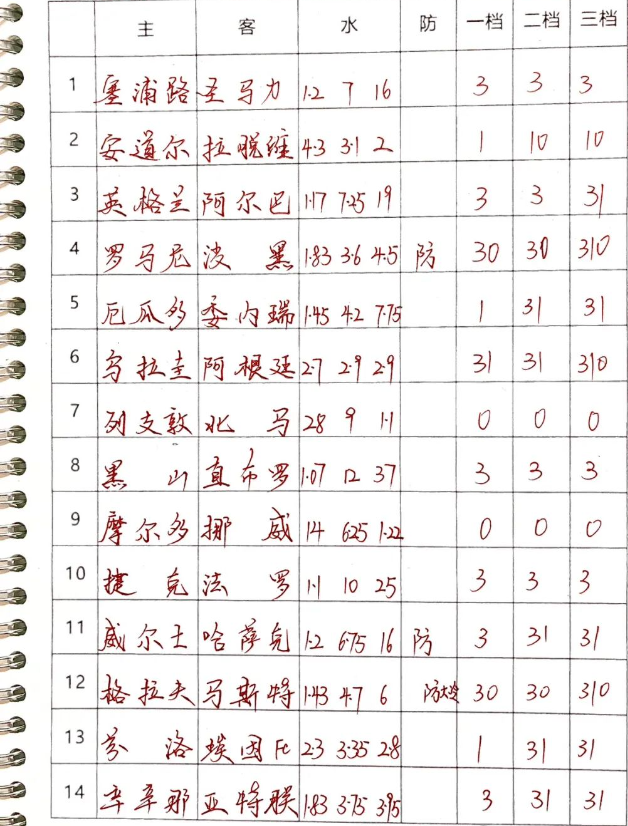 主 客 水 防 一档 二档 三档
1 塞浦路 圣马力 1.2 7 16 3 3 3
2 安道尔 拉脱维 4.3 3.1 2 1 10 10
3 英格兰 阿尔巴 1.17 7.25 19 3 3 31
4 罗马尼 波黑 1.83 3.6 4.5 防 30 30 310
5 厄瓜多 委内瑞 1.45 4.2 7.75 1 31 31
6 乌拉圭 阿根廷 2.7 2.9 2.9 31 31 310
7 列支敦 北马 28 9 1.1 0 0 0
8 黑山 直布罗 1.07 12 37 3 3 3
9 摩尔多 挪威 14 6.25 1.22 0 0 0
10 捷克 法罗 1.1 10 25 3 3 3
11 威尔士 哈萨克 1.2 6.75 16 防 3 31 31
12 格拉夫 马斯特 1.43 4.7 6 防大冷 30 30 310
13 芬洛 埃因Fc 2.3 3.35 2.8 1 31 31
14 辛辛那 亚特联 1.83 3.75 3.95 3 31 31